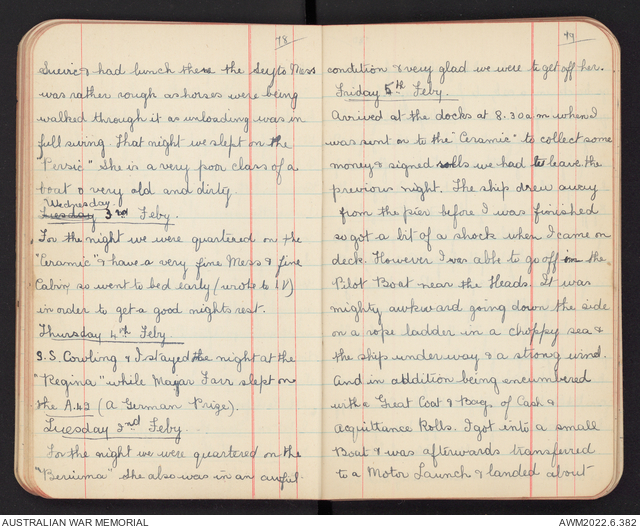 78
Suevic & had lunch there the Sgts Mess
was rather rough as horses were being
walked through it as unloading was in
full swing. That night we slept on the
"Persic" She is a very poor class of a
boat & very old and dirty.
Wednesday
Tuesday 3rd Feby.
For the night we were quartered on the
"Ceramic" & have a very fine Mess & fine
Cabin so went to bed early (wrote to
in order to get a good nights rest.
Thursday 4th Feby.
S.S. Cowling & I stayed the night at the
"Regina" while Major Farr slept on
the A.42 (A German Prize).
Tuesday 2nd Feby.
For the night we were quartered on the
"Beruima" She also was in an awful
79
condition & very glad we were to get off her.
Friday 5th Feby.
Arrived at the docks at 8.30 a.m. when I
was sent on to the "Ceramic" to collect some
money & signed rolls we had to leave the
previous night. The ship drew away
from the pier before I was finished
so got a bit of a shock when I came on
deck. However I was able to go off in the
Pilot Boat near the Heads. It was
mighty awkward going down the side
on a rope ladder in a choppy sea &
the ship underway & a strong wind.
And in addition being encumbered
with a Great Coat & Bag of Cash &
Acquittance Rolls. I got into a small
Boat & was afterwards transferred
to a Motor Launch & landed about
AUSTRALIAN WAR MEMORIAL
AWM2022.6.382